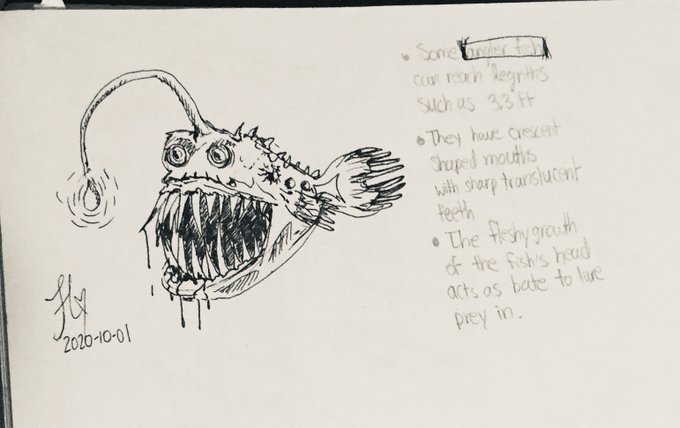 • Some angler fish
can reach legnths
such as 3.3 ft
• They have crescent
shaped mouths
with sharp translucent
teeth
• The fleshy growth
of the fish's head
acts as bate to lure
prey in.
2020-10-01